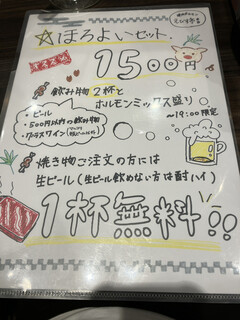 ☆ほろよいセット
1500円
飲み物2杯と
ホルモンミックス盛り
~19:00限定
・ビール
・500円以内の飲み物
・グラスワイン
焼き物ご注文の方には
生ビール(生ビール飲めない方は酎ハイ)
1杯無料!!